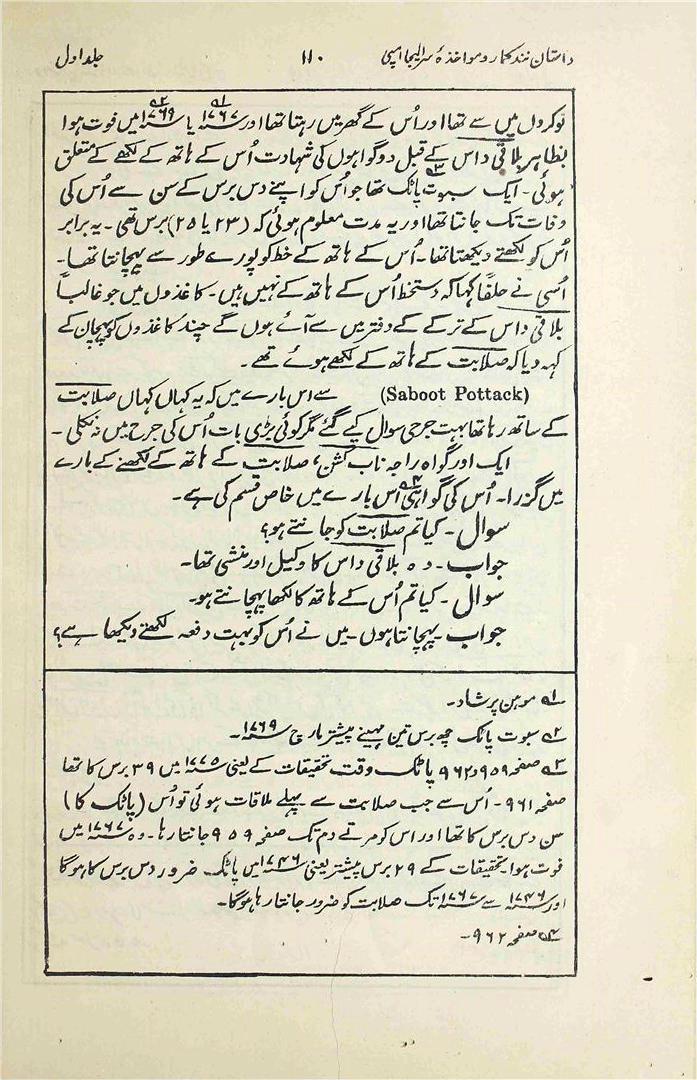 داستان نند کمار و مواخذۂ سر الیجا امپی ۱۱۰ جلد اول
نوکروں میں سے تھا اور اُس کے گھر میں رہتا تھا اور ۱۷۶۷ء؁۱ یا ۱۷۶۹ء؁۲ میں فوت ہوا
بظاہر بلاقی داس کے قبل دو گواہوں کی شہادت اُس کے ہاتھ کے لکھے کے متعلق
ہوئی۔ ایک سبوت پاٹک؁۳ تھا جو اُس کو اپنے دس برس کے سن سے اُس کی
وفات تک جانتا تھا اور یہ مدت معلوم ہوئی کہ (۲۳ یا ۲۵) برس تھی۔ یہ برابر
اُس کو لکھتے دیکھتا تھا۔ اُس کے ہاتھ کے خط کو پورے طور سے پہچانتا تھا۔
اُسی نے حلفاً کہا کہ دستخط اُس کے ہاتھ کے نہیں ہیں۔ کاغذوں میں جو غالباً
بلاقی داس کے ترکے کے دفتر میں سے آئے ہوں گے چند کاغذوں کو پہچان کے
کہہ دیا کہ صلابت کے ہاتھ کے لکھے ہوئے تھے۔
(Saboot Pottack) سے اس بارے میں کہ یہ کہاں کہاں صلابت
کے ساتھ رہا تھا بہت جرحی سوال کیے گئے مگر کوئی بڑی بات اُس کی جرح میں نہ نکلی۔
ایک اور گواہ راجہ ناب کشن، صلابت کے ہاتھ کے لکھنے کے بارے
میں گزرا۔ اُس کی گواہی؁۴ اس بارے میں خاص قسم کی ہے۔
سوال۔ کیا تم صلابت کو جانتے ہو؟
جواب۔ وہ بلاقی داس کا وکیل اور منشی تھا۔
سوال۔ کیا تم اُس کے ہاتھ کا لکھا پہچانتے ہو۔
جواب۔ پہچانتا ہوں۔ میں نے اُس کو بہت دفعہ لکھتے دیکھا ہے؟
؁۱ موہن پرشاد۔
؁۲ سبوت پاٹک چھ برس تین مہینے پیشتر مارچ ۱۷۶۹ء۔
؁۳ صفحہ ۹۵۹ و ۹۶۲ پاٹک وقت تحقیقات کے یعنی ۱۷۷۵ء میں ۳۹ برس کا تھا
صفحہ ۹۶۱۔ اُس سے جب صلابت سے پہلے ملاقات ہوئی تو اُس (پاٹک کا)
سن دس برس کا تھا اور اس کو مرتے دم تک صفحہ ۹۵۹ جانتا رہا۔ وہ ۱۷۶۷ء میں
فوت ہوا۔ تحقیقات کے ۲۹ برس پیشتر یعنی ۱۷۴۶ء میں پاٹک ضرور دس برس کا ہوگا
اور ۱۷۴۶ء سے ۱۷۶۷ء تک صلابت کو ضرور جانتا رہا ہوگا۔
؁۴ صفحہ ۹۶۲۔